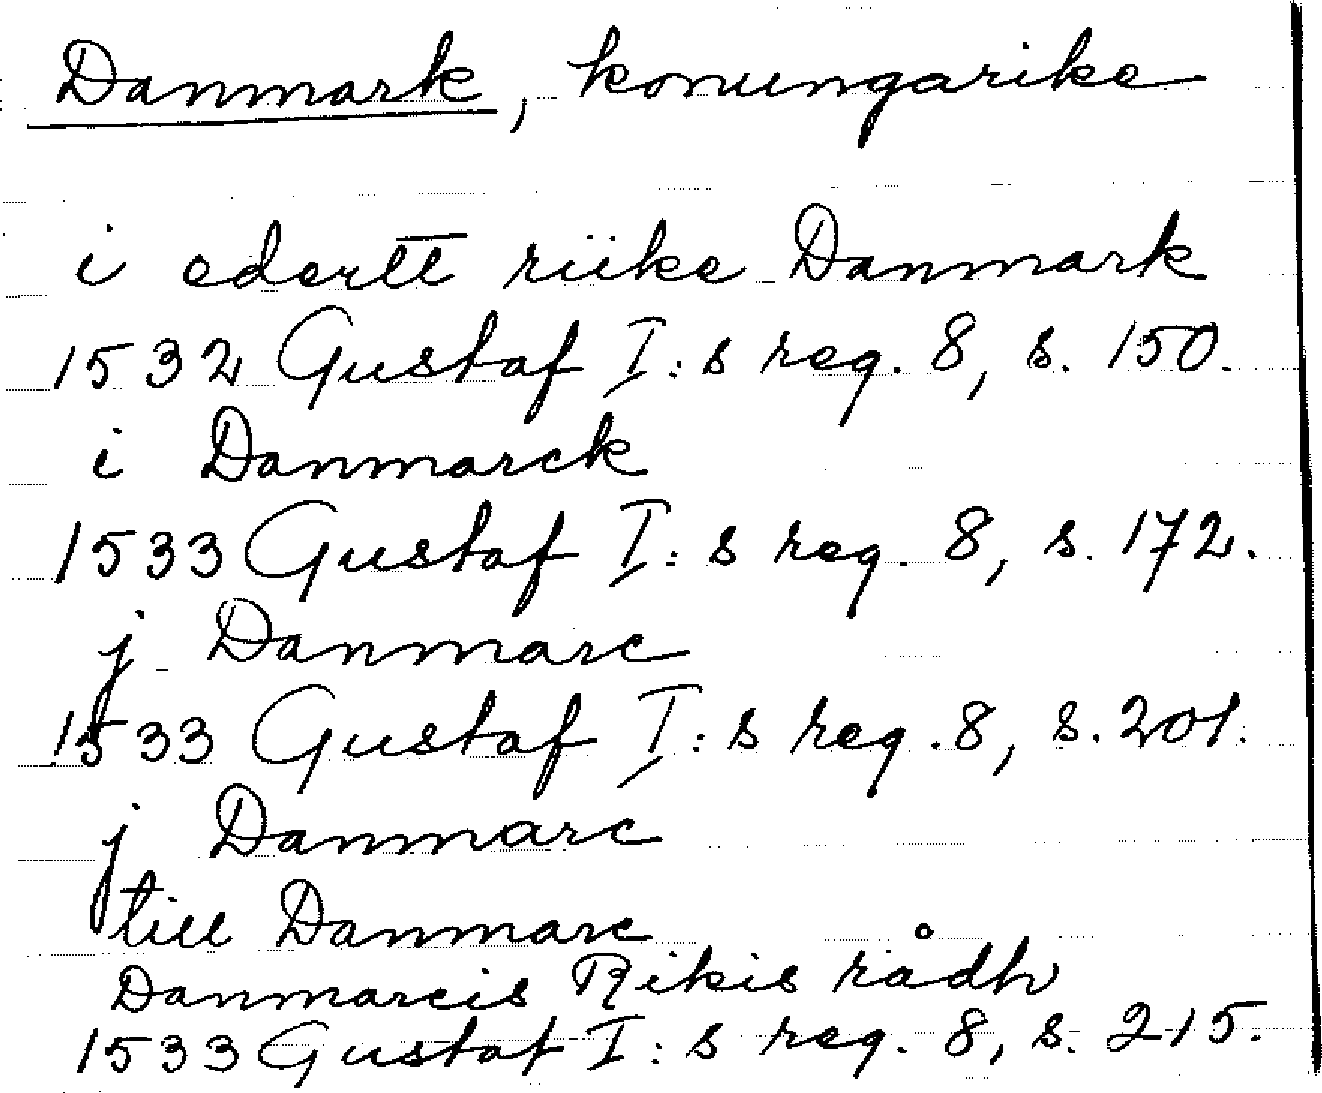 Danmark, konungarike
i edertt riike Danmark
1532 Gustaf I:s reg. 8, s. 150.
i Danmarck
1533 Gustaf I:s reg. 8, s. 172.
j Danmarc
1533 Gustaf I:s reg. 8, s. 201.
j Danmarc
till Danmarc
Danmarcis Rikis rådh
1533 Gustaf I:s reg. 8, s. 215.